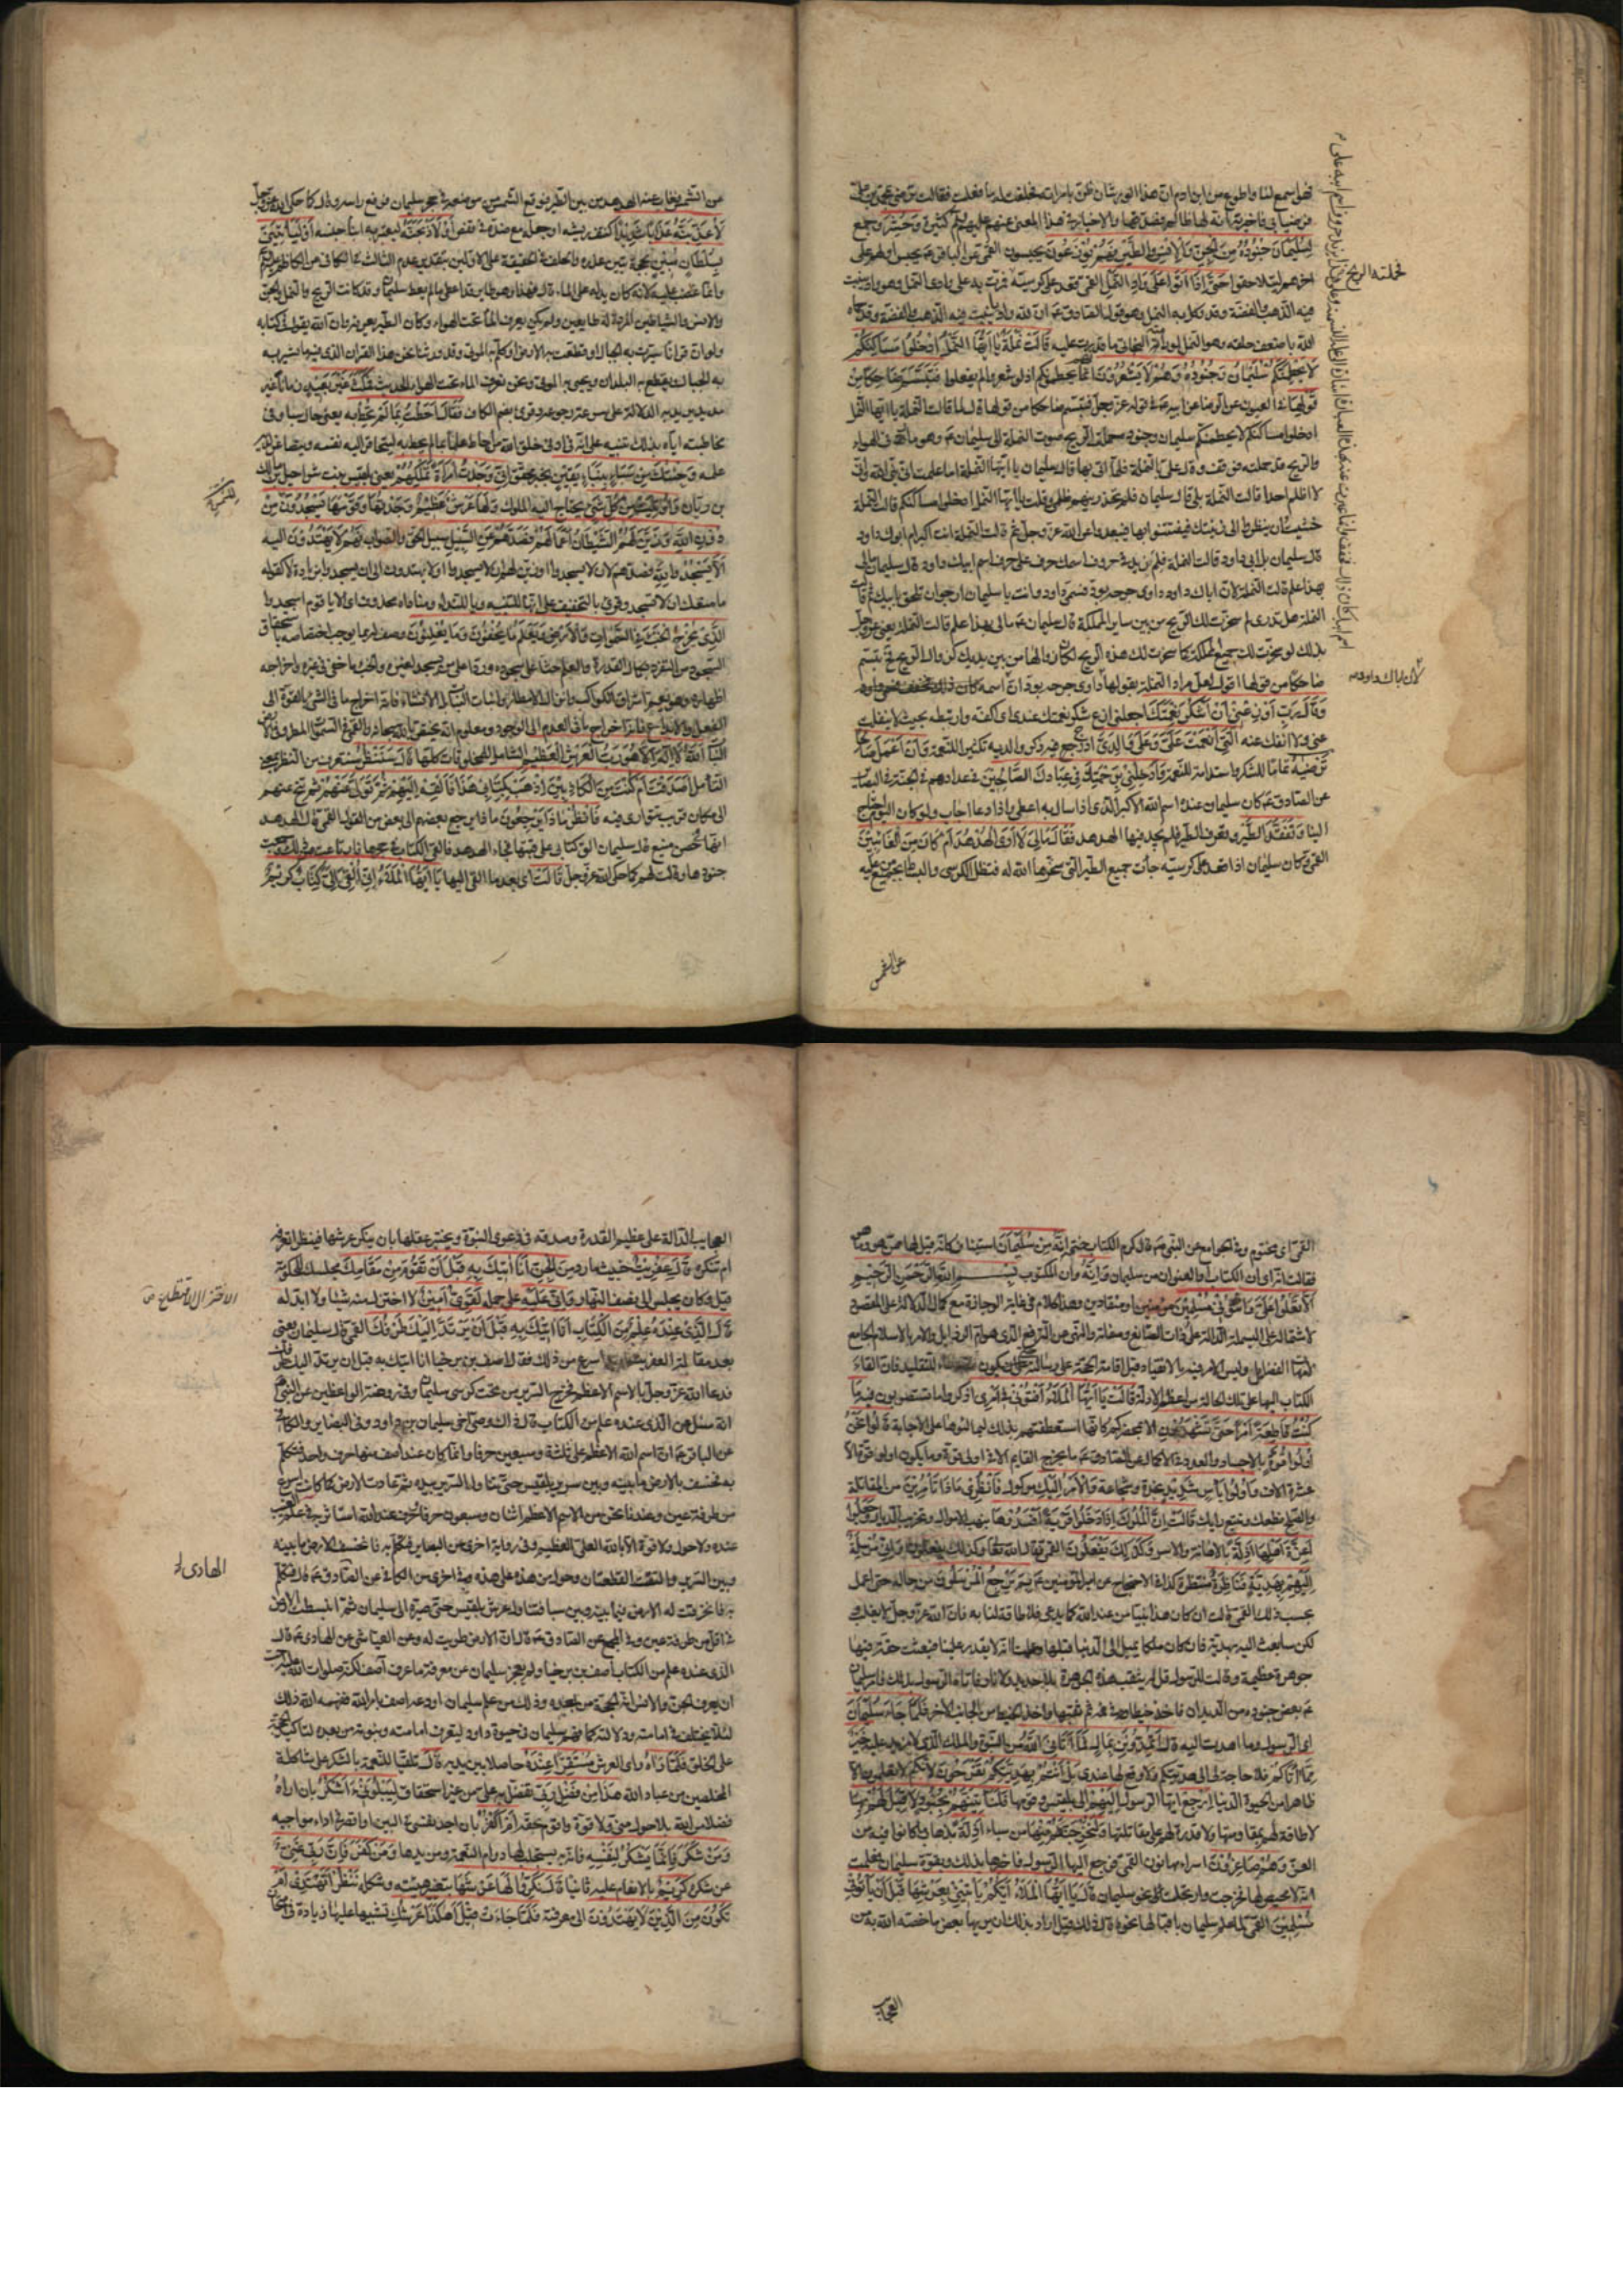 فضل اسمع لنا واطوع من ابن ادم ان هذا الورشان ظن بامراته فحلفت له ما فعلت فقالت ترضى بمحمد بن علي
فرضيا بي فاخبرته انه لها ظالم فصدقها والاخبار في هذا المعنى عنهم عليهم السلام كثيرة وَحُشِرَ وجمع
لِسُلَيْمَانَ جُنُودُهُ مِنَ الْجِنِّ وَالْإِنْسِ وَالطَّيْرِ فَهُمْ يُوزَعُونَ يحبسون القمي عن الباقر ع يحبس اولهم على
اخرهم ليتلاحقوا حَتَّى إِذَا أَتَوْا عَلَى وَادِ النَّمْلِ القمي قعد على كرسيه فمرت به على وادي النمل وهو واد ينبت
فيه الذهب والفضة وقد وكل به النمل وهو قول الصادق ع ان لله واديا ينبت فيه الذهب والفضة وقد حماه
الله باضعف خلقه وهو النمل لو رامته البخاتي ما قدرت عليه قَالَتْ نَمْلَةٌ يَا أَيُّهَا النَّمْلُ ادْخُلُوا مَسَاكِنَكُمْ
لَا يَحْطِمَنَّكُمْ سُلَيْمَانُ وَجُنُودُهُ وَهُمْ لَا يَشْعُرُونَ انهم يحطمونكم اذ لو شعروا لم يفعلوا فَتَبَسَّمَ ضَاحِكًا مِنْ
قَوْلِهَا في العيون عن الرضا عن ابيه ع في قوله عز وجل فتبسم ضاحكا من قولها قال لما قالت النملة يا ايها النمل
ادخلوا مساكنكم لا يحطمنكم سليمان وجنوده حملت الريح صوت النملة الى سليمان ع وهو مار في الهواء
والريح قد حملته فوقف وقال علي بالنملة فلما اتي بها قال سليمان يا ايتها النملة اما علمت اني نبي الله واني
لا اظلم احدا قالت النملة بلى قال سليمان فلم تحذرينهم ظلمي وقلت يا ايها النمل ادخلوا مساكنكم قالت النملة
خشيت ان ينظروا الى زينتك فيفتتنوا بها فيبعدوا عن الله عز وجل ثم قالت النملة انت اكبر ام ابوك داود
قال سليمان بل ابي داود قالت النملة فلم زيد في حروف اسمك حرف على حرف اسم ابيك داود قال سليمان مالي
بهذا علم قالت النملة لان اباك داود داوى جرحه بود فسمي داود وانت يا سليمان ارجو ان تلحق بابيك ثم قالت
النملة هل تدري لم سخرت لك الريح من بين ساير المملكة قال سليمان ع مالي بهذا علم قالت النملة يعني عز وجل
بذلك لو سخرت لك جميع المملكة كما سخرت لك هذه الريح لكان زوالها من بين يديك كزوال الريح فح تبسم
ضاحكا من قولها اقول لعل مراد النملة بقولها داوى جرحه بود ان اسمه كان
وَقَالَ رَبِّ أَوْزِعْنِي أَنْ أَشْكُرَ نِعْمَتَكَ اجعلني ازع شكر نعمتك عندي اي اكفه وارتبطه بحيث لا ينفلت
عني ولا انفك عنه الَّتِي أَنْعَمْتَ عَلَيَّ وَعَلَى وَالِدَيَّ ادرج فيه ذكر والديه تكثيرا للنعمة وَأَنْ أَعْمَلَ صَالِحًا
تَرْضَاهُ تماما للشكر واستدامة للنعمة وَأَدْخِلْنِي بِرَحْمَتِكَ فِي عِبَادِكَ الصَّالِحِينَ في عدادهم في الجنة في البصائر
عن الصادق ع كان سليمان عنده اسم الله الاكبر الذي اذا ساله به اعطى واذا دعا اجاب ولو كان اليوم لاحتاج
الينا وَتَفَقَّدَ الطَّيْرَ وتعرف الطير فلم يجد فيها الهدهد فَقَالَ مَا لِيَ لَا أَرَى الْهُدْهُدَ أَمْ كَانَ مِنَ الْغَائِبِينَ
القمي وكان سليمان اذا قعد على كرسيه جاءت جميع الطير التي سخرها الله له فتظل الكرسي والبساط بجميع من عليه
فحملته الريح
لان اباك داود
عن الشمس
عن الشمس فغاب عنه الهدهد من بين الطير فوقع الشمس من موضعه في حجر سليمان فرفع راسه وقال كما حكى الله عز وجل
لَأُعَذِّبَنَّهُ عَذَابًا شَدِيدًا كنتف ريشه او جعله مع ضده في قفص أَوْ لَأَذْبَحَنَّهُ ليعتبر به ابناء جنسه أَوْ لَيَأْتِيَنِّي
بِسُلْطَانٍ مُبِينٍ بحجة تبين عذره والحلف في الحقيقة على الاولين بتقدير عدم الثالث في الكافي عن الكاظم ع
وانما غضب عليه لانه كان يدله على الماء قال فهذا وهو طاير قد اعطي ما لم يعط سليمان وقد كانت الريح والنمل والجن
والانس والشياطين المردة له طايعين ولم يكن يعرف الماء تحت الهواء وكان الطير يعرفه وان الله يقول في كتابه
ولو ان قرانا سيرت به الجبال او قطعت به الارض او كلم به الموتى وقد ورثنا نحن هذا القران الذي فيه ما تسير به
الجبال وتقطع به البلدان ويحيى به الموتى ونحن نعرف الماء تحت الهواء الحديث فَمَكَثَ غَيْرَ بَعِيدٍ زمانا غير
مديد يريد به الدلالة على سرعة رجوعه وقرئ بضم الكاف فَقَالَ أَحَطْتُ بِمَا لَمْ تُحِطْ بِهِ يعني حال سبا وفي
مخاطبته اياه بذلك تنبيه على انه في ادنى خلق الله من احاط علما بما لم يحط به ليتحاقر اليه نفسه ويتصاغر لديه
علمه وَجِئْتُكَ مِنْ سَبَإٍ بِنَبَإٍ يَقِينٍ بخبر محقق إِنِّي وَجَدْتُ امْرَأَةً تَمْلِكُهُمْ يعني بلقيس بنت شراحيل بن مالك
بن ريان وَأُوتِيَتْ مِنْ كُلِّ شَيْءٍ يحتاج اليه الملوك وَلَهَا عَرْشٌ عَظِيمٌ وَجَدْتُهَا وَقَوْمَهَا يَسْجُدُونَ مِنْ
دُونِ اللَّهِ وَزَيَّنَ لَهُمُ الشَّيْطَانُ أَعْمَالَهُمْ فَصَدَّهُمْ عَنِ السَّبِيلِ سبيل الحق والصواب فَهُمْ لَا يَهْتَدُونَ اليه
أَلَّا يَسْجُدُوا لِلَّهِ فصدهم لان لا يسجدوا او زين لهم ان لا يسجدوا او لا يهتدون الى ان يسجدوا بزيادة لا كقوله
ما منعك ان لا تسجد وقرئ بالتخفيف على انها للتنبيه ويا للنداء ومناداه محذوف اي الا يا قوم اسجدوا
الَّذِي يُخْرِجُ الْخَبْءَ فِي السَّمَوَاتِ وَالْأَرْضِ وَيَعْلَمُ مَا يُخْفُونَ وَمَا يُعْلِنُونَ وصف له بما يوجب اختصاصه باستحقاق
السجود من التفرد بكمال القدرة والعلم حثا على سجوده وردا على من يسجد لغيره والخبء ما خفي في غيره واخراجه
اظهاره وهو يعم اشراق الكواكب وانزال الامطار وانبات النبات بل الانشاء فانه اخراج ما في الشيء بالقوة الى
الفعل والابداع فانه اخراج ما في العدم الى الوجود ومعلوم انه يختص بالله سبحانه والقمي في السموات المطر وفي الارض
النبات اللَّهُ لَا إِلَهَ إِلَّا هُوَ رَبُّ الْعَرْشِ الْعَظِيمِ قَالَ سَنَنْظُرُ سنتعرف من النظر بمعنى
التامل أَصَدَقْتَ أَمْ كُنْتَ مِنَ الْكَاذِبِينَ اذْهَبْ بِكِتَابِي هَذَا فَأَلْقِهْ إِلَيْهِمْ ثُمَّ تَوَلَّ عَنْهُمْ ثم تنح عنهم
الى مكان قريب تتوارى فيه فَانْظُرْ مَاذَا يَرْجِعُونَ ماذا يرجع بعضهم الى بعض من القول القمي قال الهدهد
انها لفي حصن منيع قال سليمان الق كتابي على قبتها فجاء الهدهد فالقى الكتاب في حجرها فارتاعت من ذلك وجمعت
جنودها وقالت لهم كما حكى الله عز وجل قَالَتْ اي بعد ما القي اليها يَا أَيُّهَا الْمَلَأُ إِنِّي أُلْقِيَ إِلَيَّ كِتَابٌ كَرِيمٌ
القمي اي مختوم وفي الجوامع عن النبي ص قال كرم الكتاب ختمه إِنَّهُ مِنْ سُلَيْمَانَ استيناف كانه قيل لها ممن هو وما هو
فقالت انه اي ان الكتاب او العنوان من سليمان وَإِنَّهُ وان المكتوب بِسْمِ اللَّهِ الرَّحْمَنِ الرَّحِيمِ
أَلَّا تَعْلُوا عَلَيَّ وَأْتُونِي مُسْلِمِينَ مؤمنين او منقادين وهذا كلام في غاية الوجازة مع كمال الدلالة على المقصود
لاشتماله على البسملة الدالة على ذات الصانع وصفاته والنهي عن الترفع الذي هو ام الرذايل والامر بالاسلام الجامع
لامهات الفضايل وليس الامر فيه بالانقياد قبل اقامة الحجة على رسالته حتى يكون للتقليد فان القاء
الكتاب اليها على تلك الحالة من اعظم الادلة قَالَتْ يَا أَيُّهَا الْمَلَأُ أَفْتُونِي فِي أَمْرِي اذكروا ما تستصوبون فيه مَا
كُنْتُ قَاطِعَةً أَمْرًا حَتَّى تَشْهَدُونِ الا بمحضركم كانها استعطفتهم بذلك ليمالئوها على الاجابة قَالُوا نَحْنُ
أُولُوا قُوَّةٍ بالاجساد والعدد في الاكمال عن الصادق ع ما يخرج القايم الا في اولي قوة وما يكون اولوا قوة الا
عشرة الاف وَأُولُوا بَأْسٍ شَدِيدٍ نجدة وشجاعة وَالْأَمْرُ إِلَيْكِ موكول فَانْظُرِي مَاذَا تَأْمُرِينَ من المقاتلة
والصلح نطعك ونتبع رايك قَالَتْ إِنَّ الْمُلُوكَ إِذَا دَخَلُوا قَرْيَةً أَفْسَدُوهَا بنهب الاموال وتخريب الديار وَجَعَلُوا
أَعِزَّةَ أَهْلِهَا أَذِلَّةً بالاهانة والاسر وَكَذَلِكَ يَفْعَلُونَ القمي فقال الله تعالى وكذلك يفعلون وَإِنِّي مُرْسِلَةٌ
إِلَيْهِمْ بِهَدِيَّةٍ فَنَاظِرَةٌ منتظرة بِمَ يَرْجِعُ الْمُرْسَلُونَ من حاله حتى اعمل
بحسب ذلك القمي قالت ان كان هذا نبيا من عند الله كما يدعي فلا طاقة لنا به فان الله عز وجل لا يغلب
لكن سابعث اليه بهدية فان كان ملكا يميل الى الدنيا قبلها وعلمت انه لا يقدر علينا فبعثت حقة فيها
جوهرة عظيمة وقالت للرسول قل له يثقب هذه الجوهرة بلا حديد ولا نار فاتاه الرسول بذلك فامر سليمان
ع بعض جنوده من الديدان فاخذ خيطا في فمه ثم ثقبها واخذ الخيط من الجانب الاخر فَلَمَّا جَاءَ سُلَيْمَانَ
اي الرسول وما اهدت اليه قَالَ أَتُمِدُّونَنِ بِمَالٍ فَمَا آتَانِيَ اللَّهُ من النبوة والملك الذي لا مزيد عليه خَيْرٌ
مِمَّا آتَاكُمْ فلا حاجة لي الى هديتكم ولا وقع لها عندي بَلْ أَنْتُمْ بِهَدِيَّتِكُمْ تَفْرَحُونَ لانكم لا تعلمون الا
ظاهرا من الحيوة الدنيا ارْجِعْ ايها الرسول إِلَيْهِمْ الى بلقيس وقومها فَلَنَأْتِيَنَّهُمْ بِجُنُودٍ لَا قِبَلَ لَهُمْ بِهَا
لا طاقة لهم بمقاومتها ولا قدرة لهم على مقاتلتها وَلَنُخْرِجَنَّهُمْ مِنْهَا من سباء أَذِلَّةً بذهاب ما كانوا فيه من
العز وَهُمْ صَاغِرُونَ اسراء مهانون القمي فرجع اليها الرسول فاخبرها بذلك وبقوة سليمان فعلمت
انه لا محيص لها فخرجت وارتحلت نحو سليمان قَالَ يَا أَيُّهَا الْمَلَأُ أَيُّكُمْ يَأْتِينِي بِعَرْشِهَا قَبْلَ أَنْ يَأْتُونِي
مُسْلِمِينَ القمي لما علم سليمان باقبالها نحوه قال ذلك قيل اراد بذلك ان يريها بعض ما خصه الله به من
العجايب
العجايب الدالة على عظيم القدرة وصدقه في دعوى النبوة ويختبر عقلها بان ينكر عرشها فينظر اتعرفه
ام تنكره قَالَ عِفْرِيتٌ خبيث مارد مِنَ الْجِنِّ أَنَا آتِيكَ بِهِ قَبْلَ أَنْ تَقُومَ مِنْ مَقَامِكَ مجلسك للحكومة
قيل وكان يجلس الى نصف النهار وَإِنِّي عَلَيْهِ على حمله لَقَوِيٌّ أَمِينٌ لا اختزل منه شيئا ولا ابدله
قَالَ الَّذِي عِنْدَهُ عِلْمٌ مِنَ الْكِتَابِ أَنَا آتِيكَ بِهِ قَبْلَ أَنْ يَرْتَدَّ إِلَيْكَ طَرْفُكَ القمي قال سليمان يعني
بعد مقالة العفريت اريد اسرع من ذلك فقال اصف بن برخيا انا اتيك به قبل ان يرتد اليك طرفك
فدعا الله عز وجل بالاسم الاعظم فخرج السرير من تحت كرسي سليمان وفي روضة الواعظين عن النبي ص
انه سئل عن الذي عنده علم من الكتاب قال ذاك وصي اخي سليمان بن داود وفي البصاير والكافي
عن الباقر ع ان اسم الله الاعظم على ثلثة وسبعين حرفا وانما كان عند اصف منها حرف واحد فتكلم
به فخسف بالارض ما بينه وبين سرير بلقيس حتى تناول السرير بيده ثم عادت الارض كما كانت اسرع
من طرفة عين وعندنا نحن من الاسم الاعظم اثنان وسبعون حرفا وحرف عند الله استاثر به في علم الغيب
عنده ولا حول ولا قوة الا بالله العلي العظيم وفي رواية اخرى عن البصاير فتكلم به فانخسف الارض ما بينه
وبين السرير والتفت القطعتان وحول من هذه على هذه وفي اخرى من الكافي عن الصادق ع قال فتكلم
به فانخرقت له الارض فيما بينه وبين سبا فتناول عرش بلقيس حتى صيره الى سليمان ثم انبسطت الارض
في اقل من طرفة عين وفي المجمع عن الصادق ع قال ان الارض طويت له وعن العياشي عن الهادي ع قال
الذي عنده علم من الكتاب اصف بن برخيا ولم يعجز سليمان عن معرفة ما عرف اصف لكنه صلوات الله عليه احب
ان يعرف الجن والانس انه الحجة من بعده وذلك من علم سليمان اودعه اصف بامر الله ففهمه الله ذلك
لئلا يختلف في امامته ودلالته كما فهم سليمان في حيوة داود ليعرف امامته ونبوته من بعده لتاكيد الحجة
على الخلق فَلَمَّا رَآهُ راى العرش مُسْتَقِرًّا عِنْدَهُ حاصلا بين يديه قَالَ تلقيا للنعمة بالشكر على شاكلة
المخلصين من عباد الله هَذَا مِنْ فَضْلِ رَبِّي تفضل به علي من غير استحقاق لِيَبْلُوَنِي أَأَشْكُرُ بان اراه
فضلا من الله بلا حول مني ولا قوة واقوم بحقه أَمْ أَكْفُرُ بان اجد نفسي في البين او اقصر في اداء مواجبه
وَمَنْ شَكَرَ فَإِنَّمَا يَشْكُرُ لِنَفْسِهِ فانه به يستجلب لها دوام النعمة ومزيدها وَمَنْ كَفَرَ فَإِنَّ رَبِّي غَنِيٌّ
عن شكره كَرِيمٌ بالانعام عليه ثانيا قَالَ نَكِّرُوا لَهَا عَرْشَهَا بتغيير هيئته وشكله نَنْظُرْ أَتَهْتَدِي أَمْ
تَكُونُ مِنَ الَّذِينَ لَا يَهْتَدُونَ الى معرفته فَلَمَّا جَاءَتْ قِيلَ أَهَكَذَا عَرْشُكِ تشبيها عليها زيادة في امتحان
الاختزال الاقتطاع
الهادي